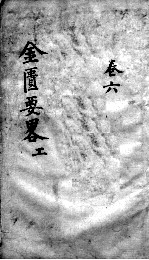 卷六
金匱要畧工